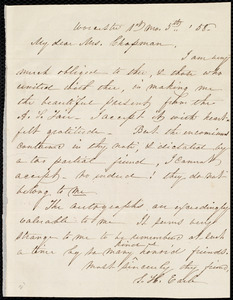 Worcester 1st mo. 5th '58.
My dear Mrs. Chapman,
I am very
much obliged to thee, & those who
united with thee, in making me
the beautiful present from the
A. S. Fair. I accept it with heart-
felt gratitude. But the encomiums
contained in thy note, & dictated by
a too partial friend, I cannot
accept. No indeed! they do not
belong to me
The autographs are exceedingly
valuable to me. It seems very
strange to me to be remembered at such
honored
a time by so many honor'd friends.
Most sincerely thy friend,
S. H. Earle